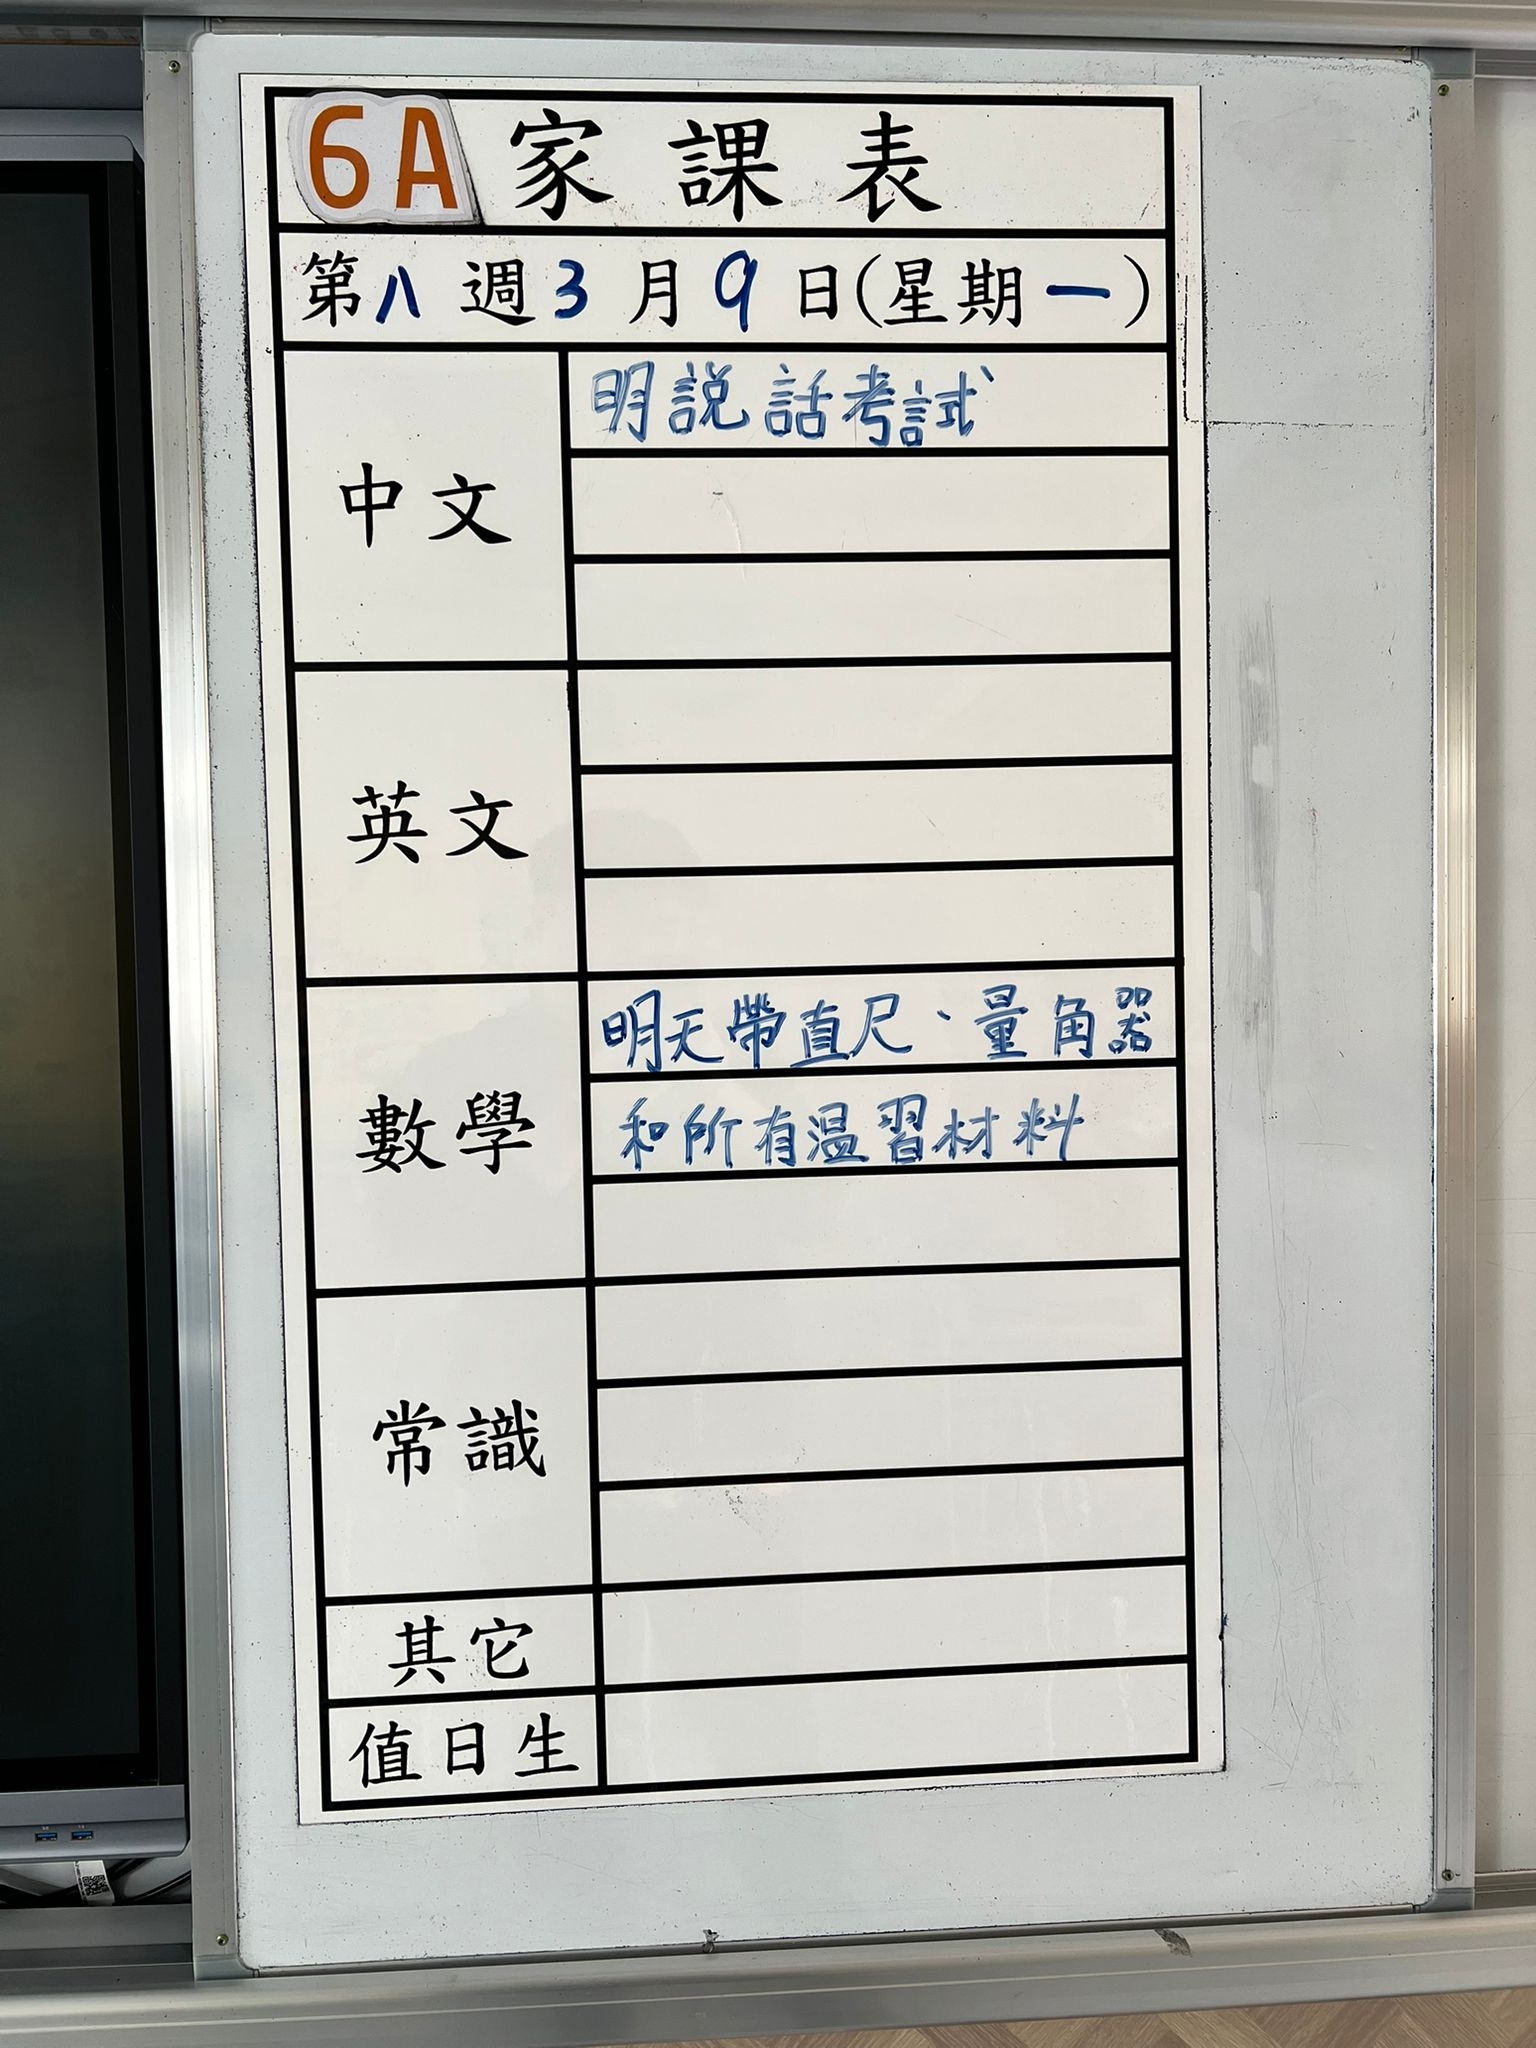 6A 家課表
第八週3月9日(星期一)
中文
明説話考試
英文
數學
明天帶直尺、量角器
和所有温習材料
常識
其它
值日生